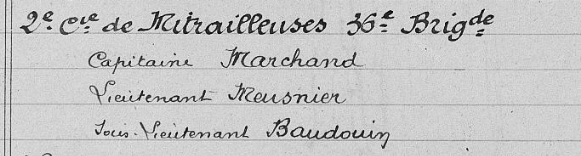 2e Cie de Mitrailleuses 36e Brigde
Capitaine Marchand
Lieutenant Meusnier
Sous-Lieutenant Baudouin